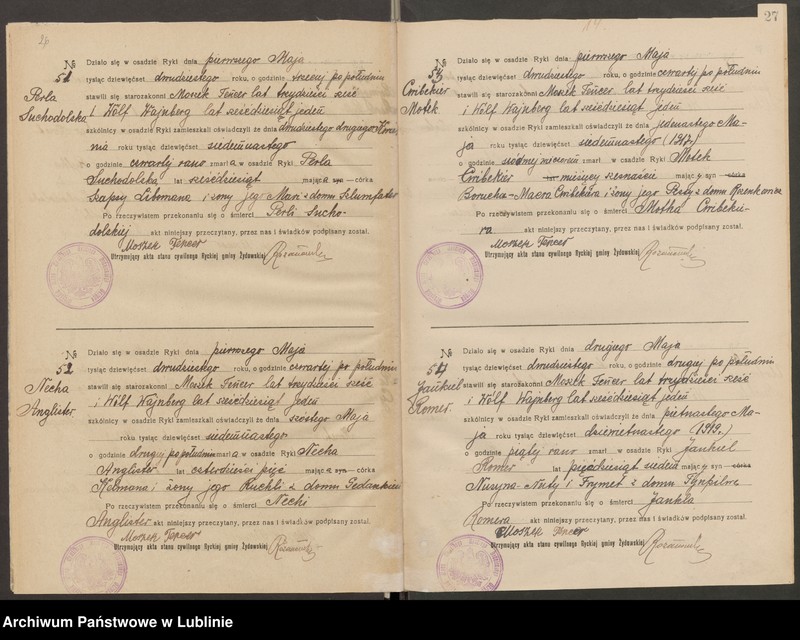 26
№
51
Perla
Suchodolska
Działo się w osadzie Ryki dnia pierwszego Maja
tysiąc dziewięćset dwudziestego roku, o godzinie trzeciej po południu
stawili się starozakonni Moszek Tencer lat trzydzieści sześć
i Wolf Wajnberg lat sześćdziesiąt jeden
szkólnicy w osadzie Ryki zamieszkali oświadczyli że dnia dwudziestego drugiego Kwiet-
nia roku tysiąc dziewięćset siedemnastego
o godzinie czwartej rano zmarła w osadzie Ryki Perla
Suchodolska lat sześćdziesiąt mająca syn córka
Szapsy Libmana i żony jego Mari z domu
Po rzeczywistem przekonaniu się o śmierci Perli Sucho-
dolskiej akt niniejszy przeczytany, przez nas i świadków podpisany został.
Moszek Tencer
Utrzymujący akta stanu cywilnego Ryckiej gminy Żydowskiej
№
52
Necha
Anglister
Działo się w osadzie Ryki dnia pierwszego Maja
tysiąc dziewięćset dwudziestego roku, o godzinie czwartej po południu
stawili się starozakonni Moszek Tencer lat trzydzieści sześć
i Wolf Wajnberg lat sześćdziesiąt jeden
szkólnicy w osadzie Ryki zamieszkali oświadczyli że dnia szóstego Maja
roku tysiąc dziewięćset siedemnastego
o godzinie drugiej po południu zmarła w osadzie Ryki Necha
Anglister lat czterdzieści pięć mająca syn córka
Kelmana i żony jego Ruchli z domu
Po rzeczywistem przekonaniu się o śmierci Nechi
Anglister akt niniejszy przeczytany, przez nas i świadków podpisany został.
Moszek Tencer
Utrzymujący akta stanu cywilnego Ryckiej gminy Żydowskiej
27
№
53
Cwibekier
Motek
Działo się w osadzie Ryki dnia pierwszego Maja
tysiąc dziewięćset dwudziestego roku, o godzinie czwartej po południu
stawili się starozakonni Moszek Tencer lat trzydzieści sześć
i Wolf Wajnberg lat sześćdziesiąt jeden
szkólnicy w osadzie Ryki zamieszkali oświadczyli że dnia jedenastego Ma-
ja roku tysiąc dziewięćset siedemnastego (1917)
o godzinie siódmej wieczorem zmarł w osadzie Ryki Motek
Cwibekier lat miesięcy szesnaście mający syn córka
Borucha-Maera Cwibekiera i żony jego Perły z domu
Po rzeczywistem przekonaniu się o śmierci Motka Cwibekie-
ra akt niniejszy przeczytany, przez nas i świadków podpisany został.
Moszek Tencer
Utrzymujący akta stanu cywilnego Ryckiej gminy Żydowskiej
№
54
Jankiel
Romer
Działo się w osadzie Ryki dnia drugiego Maja
tysiąc dziewięćset dwudziestego roku, o godzinie drugiej po południu
stawili się starozakonni Moszek Tencer lat trzydzieści sześć
i Wolf Wajnberg lat sześćdziesiąt jeden
szkólnicy w osadzie Ryki zamieszkali oświadczyli że dnia piętnastego Ma-
ja roku tysiąc dziewięćset dziewiętnastego (1919r.)
o godzinie piątej rano zmarł w osadzie Ryki Jankiel
Romer lat pięćdziesiąt siedem mający syn córka
Nusyna-Nuty i Frymet z domu
Po rzeczywistem przekonaniu się o śmierci Jankla
Romera akt niniejszy przeczytany, przez nas i świadków podpisany został.
Moszek Tencer
Utrzymujący akta stanu cywilnego Ryckiej gminy Żydowskiej
Archiwum Państwowe w Lublinie